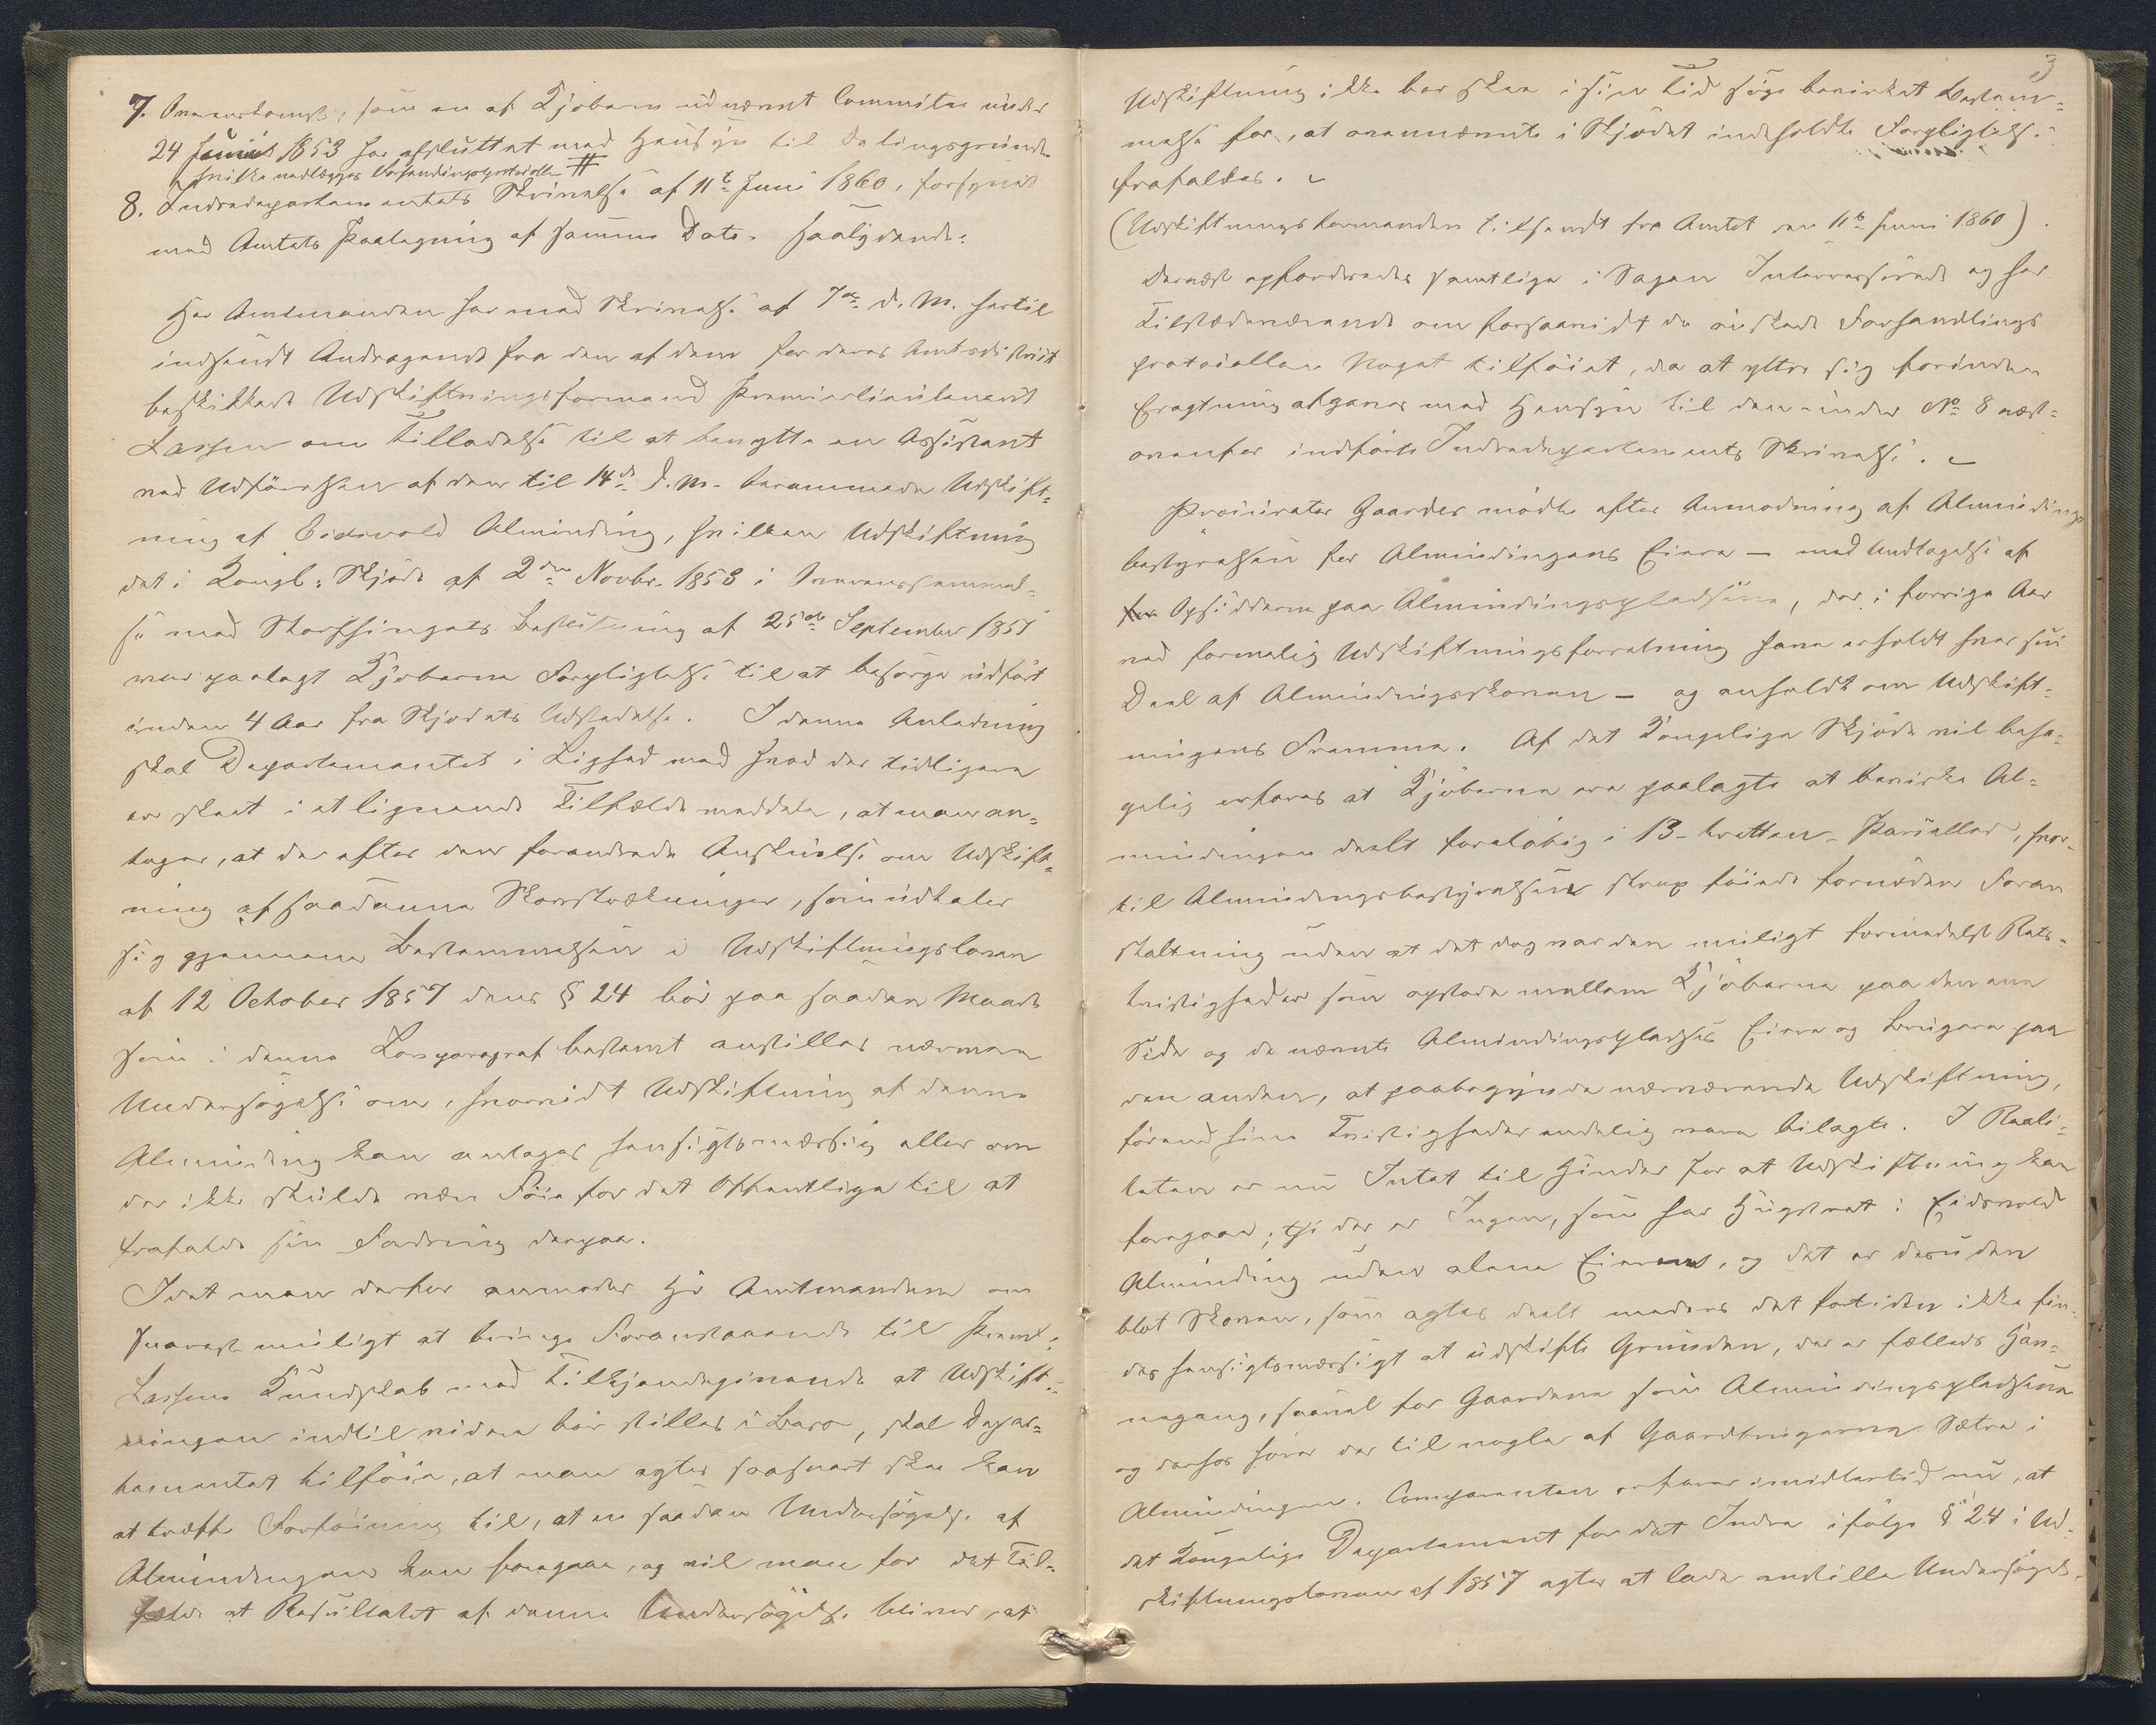 7. Overenskomst, som en af Kjøberne udnævnt Committee under
24 Junii 1853 har afsluttet med Hensyn til Delingsgrunde
hvilke vedlægges Forhandlingsprotocollen #
8. Indredepartementets Skrivelse af 11te Juni 1860, forsynet
med Amtets Paategning af samme Dato saalydende:
Hr Amtmanden har med Skrivelse af 7de d. M. hertil
indsendt Andragende fra den af dem for deres Amtsdistrict
beskikkede Udskiftningsformand Premierlieutenant
Lassen om Tilladelse til at benytte en Assistent
ved Udførelsen af den til 14de d. M. berammede Udskift-
ning af Eidsvold Alminding, hvilken Udskiftning
det i Kongl: Skjøde af 2den Novbr. 1853 i Overenssemmel-
se med Storthingets Beslutning af 25de September 1851
var paalagt Kjøberne Forpligtelse til at besørge udført
inden 4 Aar fra Skjødets Udstedelse. I denne Anledning
skal Departementet i Lighed med hvad der tidligere
er skeet i et lignende Tilfælde meddele, at man an-
tager, at der efter den forandrede Anskuelse om Udskift-
ning af saadanne Skovstrækninger, som udtaler
sig gjennem Bestemmelsen i Udskiftningsloven
af 12 October 1857 dens § 24 bør paa saadan Maade
som i denne Lovparagraf bestemt anstilles nærmere
Undersøgelse om, hvorvidt Udskiftning af denne
Alminding kan antages hensigtsmæssig eller om
der ikke skulde være Føie for det Offentlige til at
frafalde sin Fordring derpaa.
Idet man derfor anmoder Hr Amtmanden om
snarest muligt at bringe Foranstaaende til Preml:
Lassens Kundskab med Tilkjendegivende at Udskift-
ningen indtil videre bør stilles i Bero, skal Depar-
tementet tilføie, at man agter saasnart skee kan
at træffe Forføining til, at en saadan Undersøgelse af
Almindingen kan foregaae, og vil man for det Til-
fælde at Resultatet af denne Undersøgelse bliver, at
3
Udskiftning ikke bør skee i sin Tid søge bevirket Bestem-
melse for, at ovennævnte i Skjødet indeholdte Forpligtelse
frafaldes.
(Udskiftningsformanden tilsendt fra Amtet den 11te Juni 1860).
Dernæst opfordredes samtlige i Sagen Interesserede og her
Tilstedeværende om forsaavidt de ønskede Forhandlings
protocollen Noget tilføiet, da at yttre sig forinden
Eragtning afgaves med Hensyn til den under No 8 næst-
ovenfor indførte Indredepartements Skrivelse.
Procurator Gaarder mødte efter Anmodning af Almindings
bestyrelsen for Almindingens Eiere – med Undtagelse af
Opsidderne paa Almindingspladsene, der i forrige Aar
ved formelig Udskiftningsforretning have erholdt hver sin
Deel af Almindingsskoven – og anholdt om Udskift-
ningens Fremme. Af det Kongelige Skjøde vil behø-
gelig erfares at Kjøberne ere paalagte at bevirke Al-
mindingen deelt foreløbig i 13 – tretten – Parseller, hvor-
til Almindingsbestyrelsen strax føiede fornøden Foran
staltning uden at det dog var dem muligt formedelst Rets-
tvistigheder som opstode mellem Kjøberne paa den ene
Side og de nævnte Almindingspladses Eiere og Brugere paa
den anden, at paabegynde nærværende Udskiftning,
førend hine Tvistigheder endelig vare bilagte. I Reali-
teten er nu Intet til Hinder for at Udskiftning kan
foregaae; thi der er Ingen, som har Hugstret i Eidsvold
Alminding uden alene Eierne, og det er desuden
blot Skoven, som agtes deelt medens det fortiden ikke fin-
des hensigtsmæssigt at udskifte Grunden, der er fælleds Hav-
negang, saavel for Gaardene som Almindingspladsene
og derhos høre der til nogle af Gaardbrugerne Sætre i
Almindingen. Comparenten erfarer imidlertid nu, at
det Kongelige Departement for det Indre ifølge § 24 i Ud-
skiftningsloven af 1857 agter at lade anstille Undersøgel-